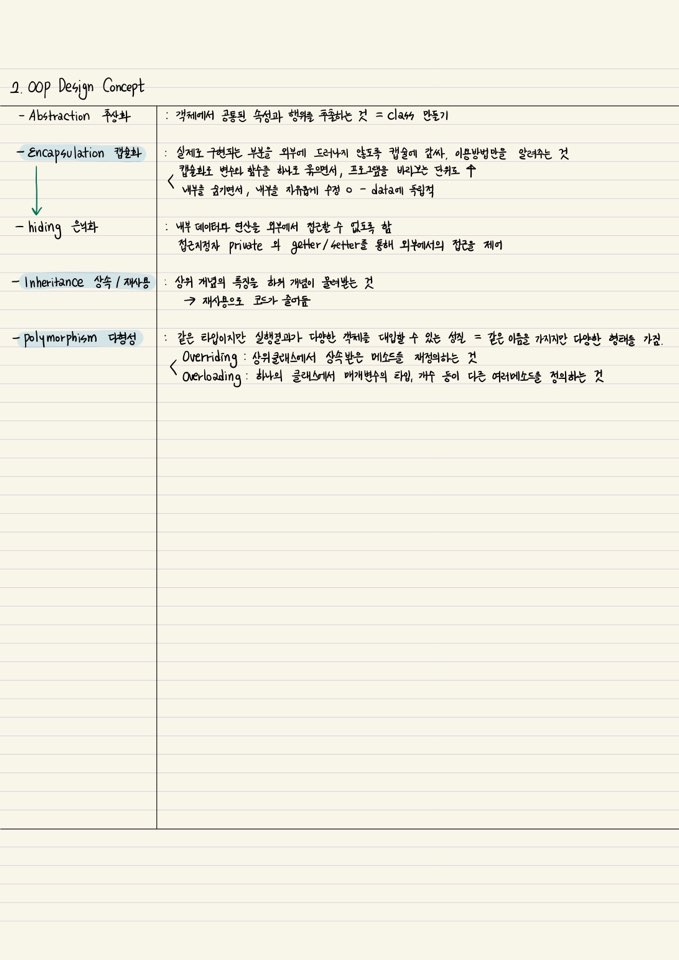 2. OOP Design Concept
- Abstraction 추상화 : 객체에서 공통된 속성과 행위를 추출하는 것 = class 만들기
- Encapsulation 캡슐화 : 실제로 구현되는 부분을 외부에 드러나지 않도록 캡슐에 감싸, 이용방법만을 알려주는 것
캡슐화로 변수와 함수를 하나로 묶으면서, 프로그램을 바라보는 단위도 ↑
내부를 숨기면서, 내부를 자유롭게 수정 o - data에 독립적
- hiding 은닉화 : 내부 데이터와 연산을 외부에서 접근할 수 없도록 함
접근지정자 private 와 getter/setter를 통해 외부에서의 접근을 제어
- Inheritance 상속 / 재사용 : 상위 개념의 특징을 하위 개념이 물려받는 것
→ 재사용으로 코드가 줄어듦
- polymorphism 다형성 : 같은 타입이지만 실행결과가 다양한 객체를 대입할 수 있는 성질 = 같은 이름을 가지지만 다양한 형태를 가짐.
Overriding : 상위클래스에서 상속받은 메소드를 재정의하는 것
Overloading : 하나의 클래스에서 매개변수의 타입, 개수 등이 다른 여러메소드를 정의하는 것